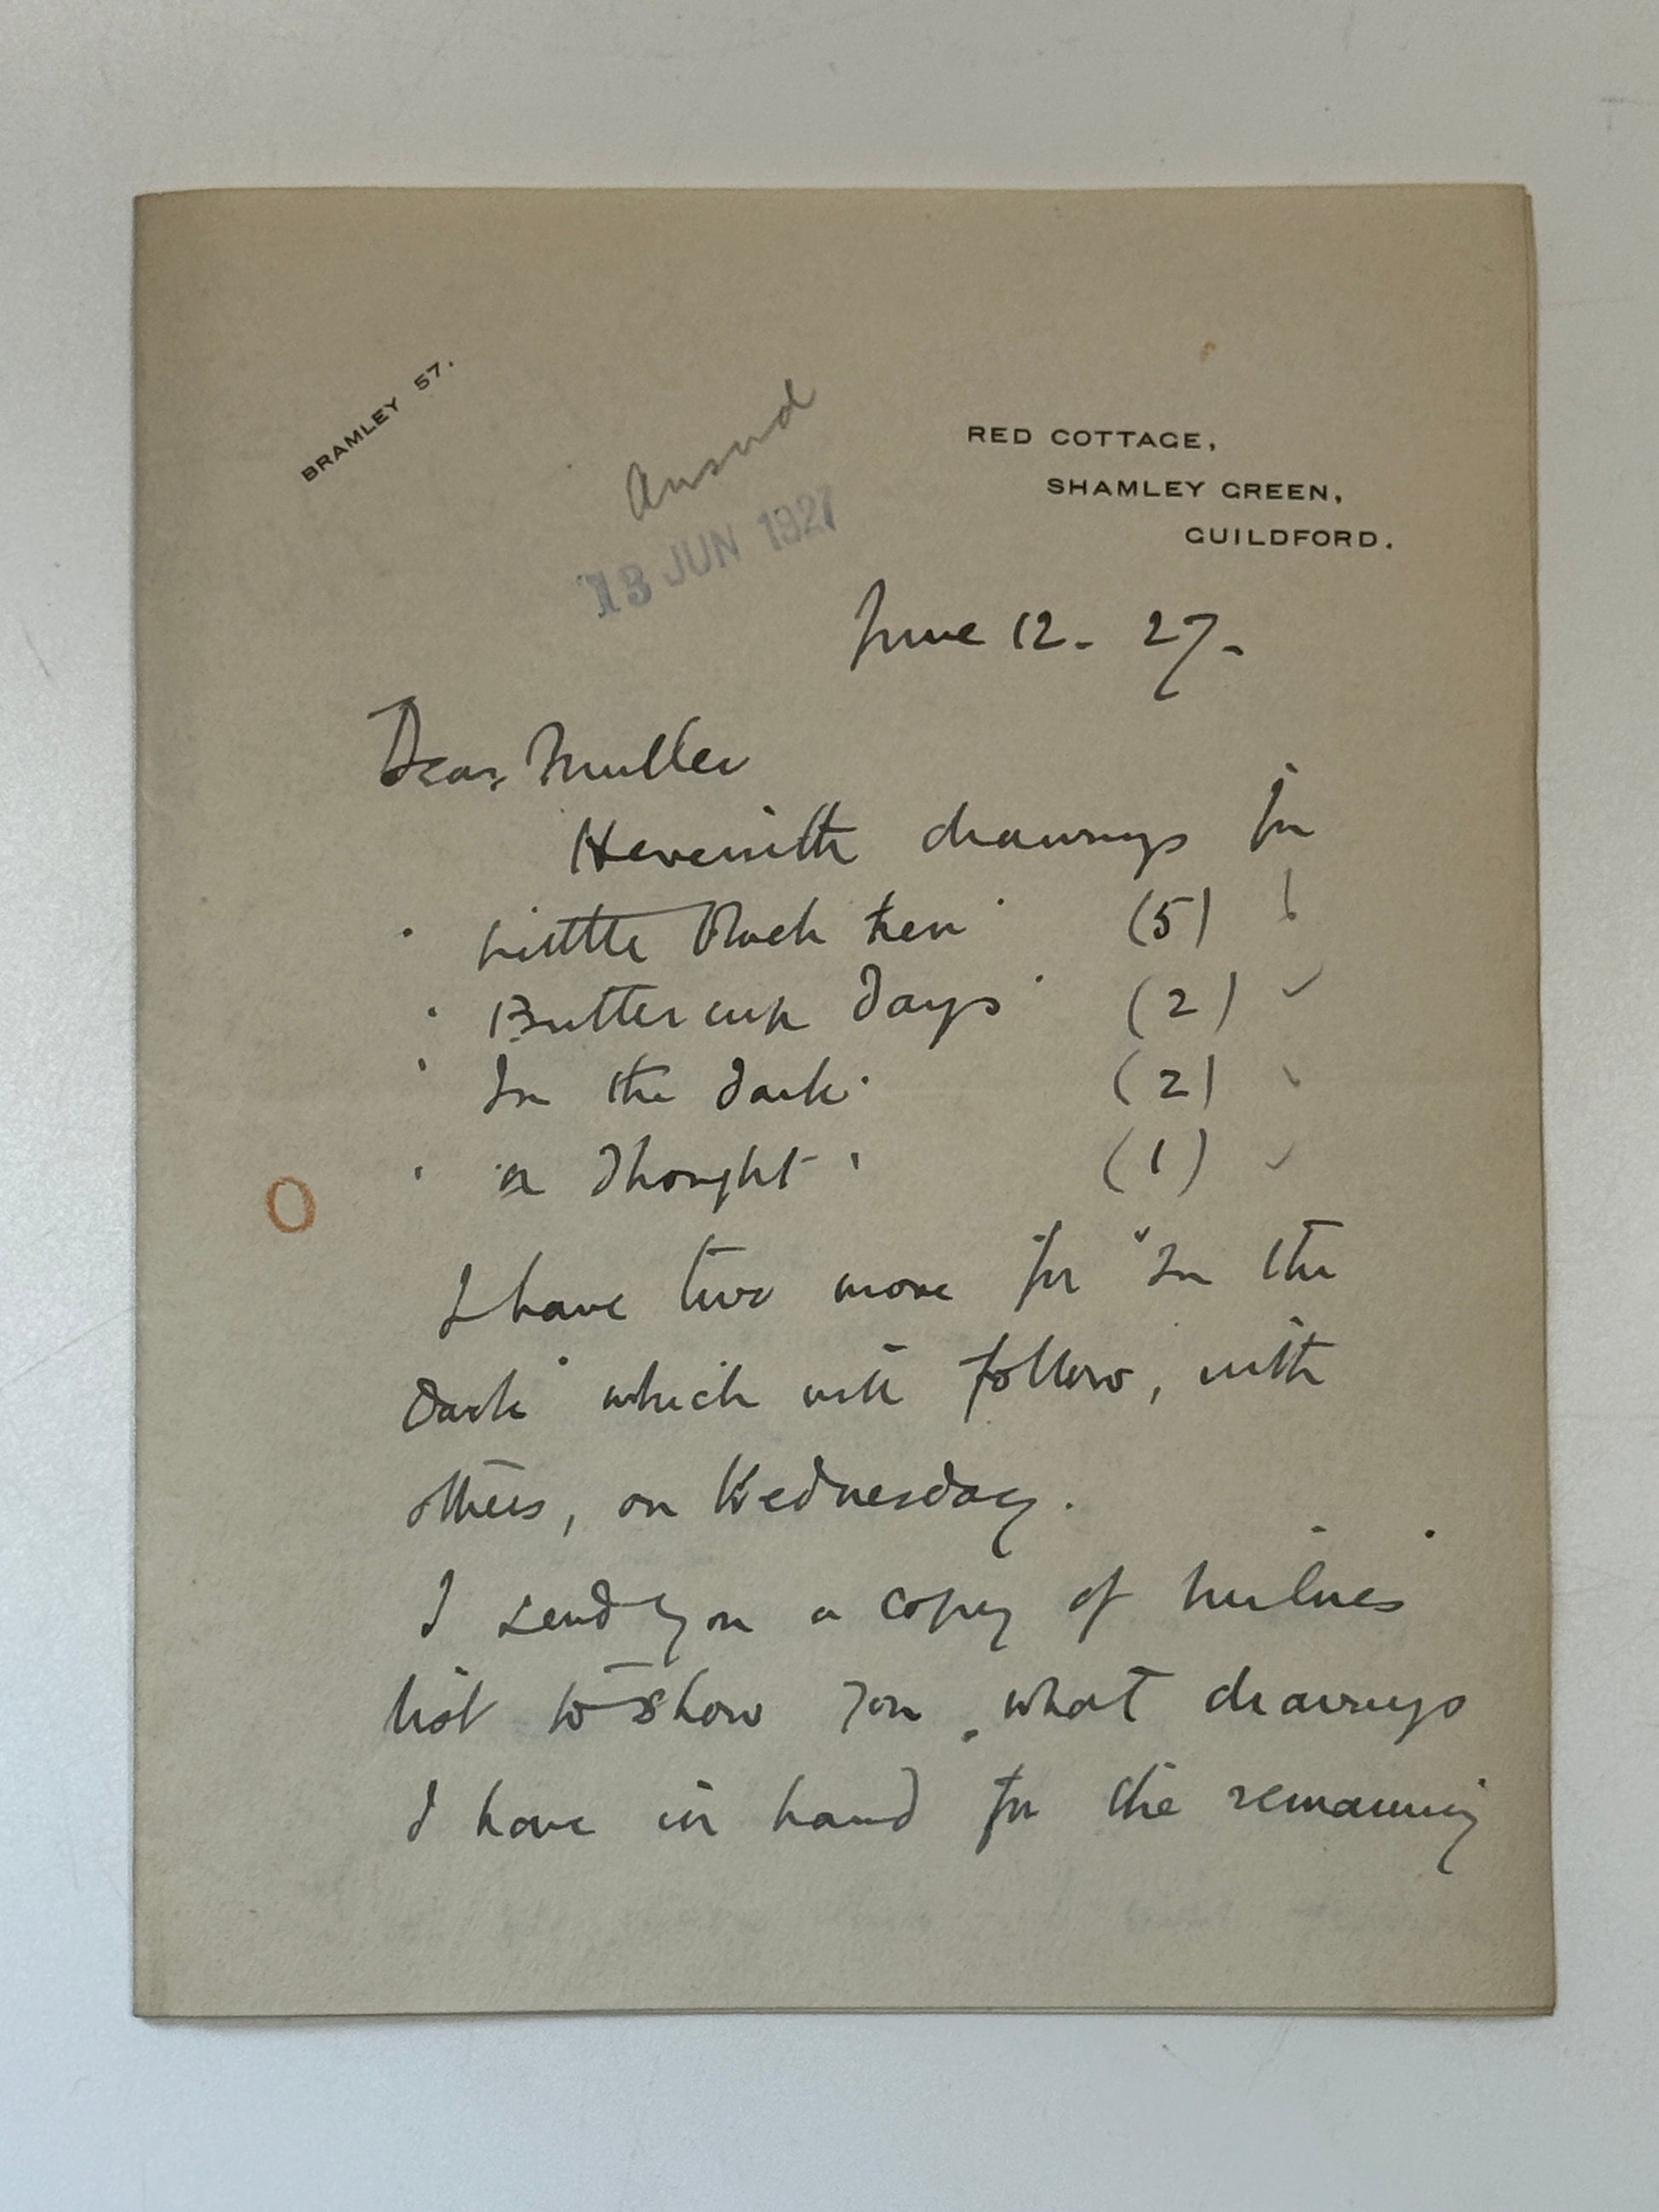 BRAMLEY 57.
Answd
13 JUN 1927
RED COTTAGE,
SHAMLEY GREEN,
GUILDFORD.
June 12. 27.
Dear Muller
Herewith drawings for
" Little Black Hen " (5)
" Buttercup Days " (2) ✓
" In the Dark " (2) ✓
" A Thought " (1) ✓
I have two more for "In the
Dark" which will follow, with
others, on Wednesday.
I send you a copy of Milne's
list to show you what drawings
I have in hand for the remaining